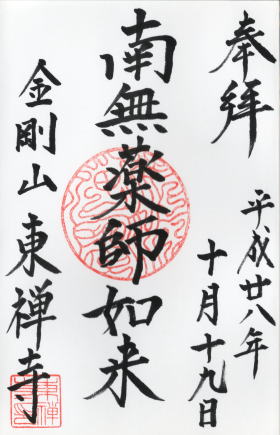 奉拝
平成廿八年
十月十九日
南無薬師如来
金剛山東禅寺